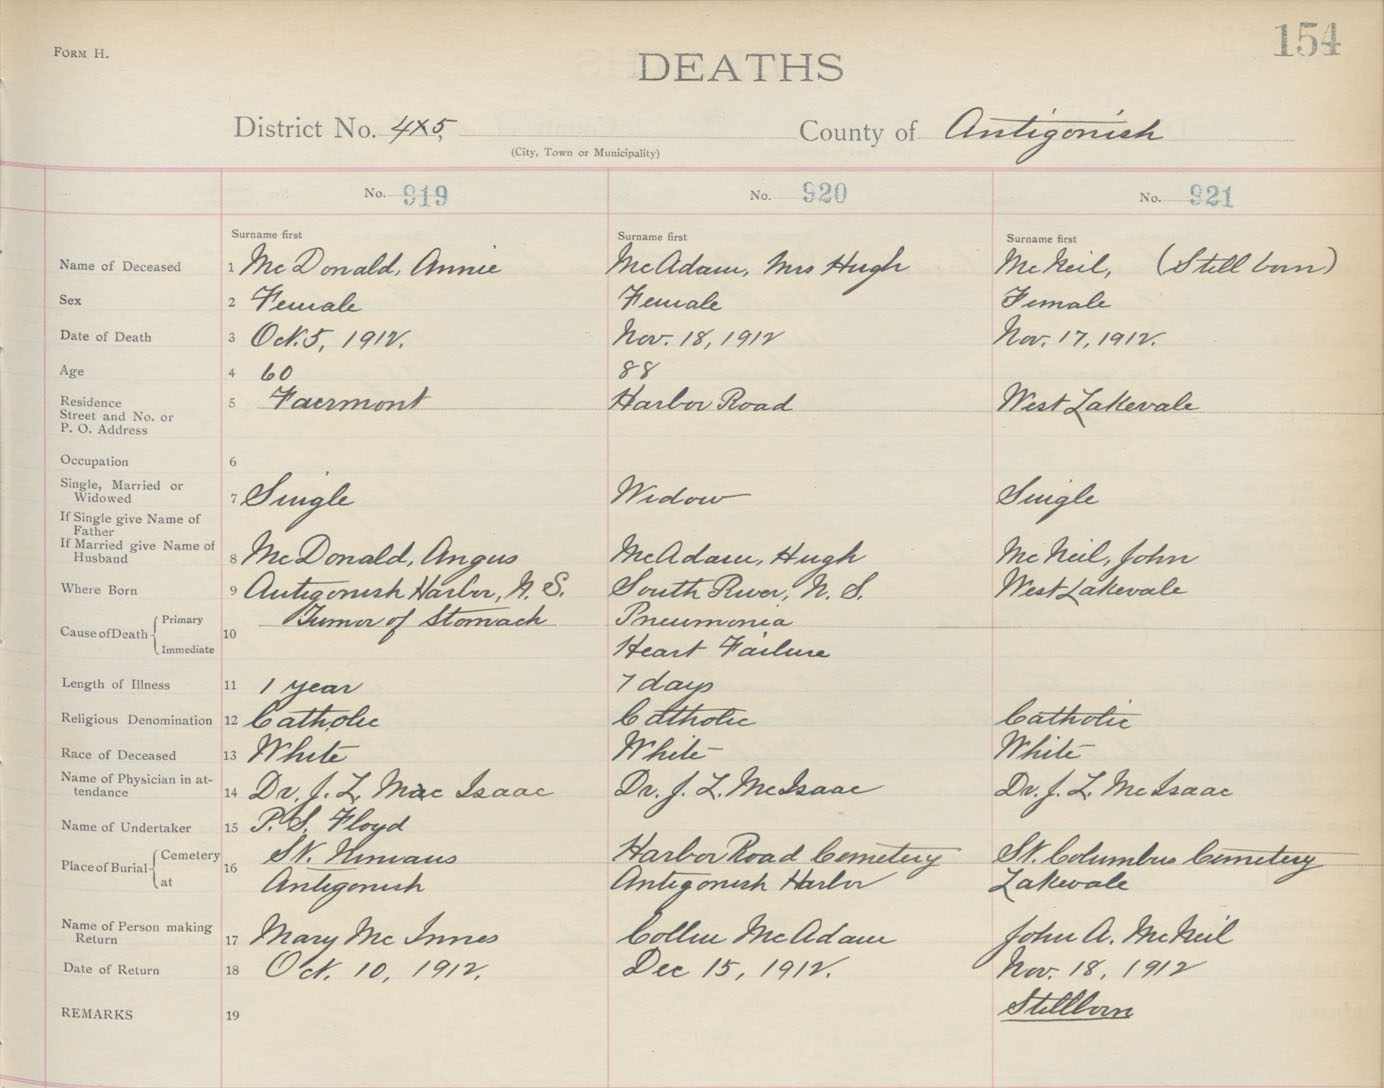 FORM H.
154
DEATHS
District No. 4X5, County of Antigonish
(City, Town or Municipality)
No. 919 No. 920 No. 921
Surname first Surname first Surname first
Name of Deceased 1 McDonald, Annie McAdam, Mrs Hugh McNeil, (Still born)
Sex 2 Female Female Female
Date of Death 3 Oct. 5, 1912. Nov. 18, 1912 Nov. 17, 1912.
Age 4 60 88
Residence 5 Fairmont Harbor Road West Lakevale
Street and No. or
P. O. Address
Occupation 6
Single, Married or
Widowed 7 Single Widow Single
If Single give Name of
Father
If Married give Name of
Husband 8 McDonald, Angus McAdam, Hugh McNeil, John
Where Born 9 Antigonish Harbor, N. S. South River, N. S. West Lakevale
Cause of Death Primary 10 Tumor of Stomach Pneumonia
Immediate Heart Failure
Length of Illness 11 1 year 7 days
Religious Denomination 12 Catholic Catholic Catholic
Race of Deceased 13 White White White
Name of Physician in at-
tendance 14 Dr. J. L. MacIsaac Dr. J. L. McIsaac Dr. J. L. McIsaac
Name of Undertaker 15 P. S. Floyd
Place of Burial Cemetery 16 St. Ninians Harbor Road Cemetery St. Columbus Cemetery
at Antigonish Antigonish Harbor Lakevale
Name of Person making
Return 17 Mary McInnes Collin McAdam John A. McNeil
Date of Return 18 Oct. 10, 1912. Dec 15, 1912. Nov. 18, 1912
REMARKS 19 Stillborn